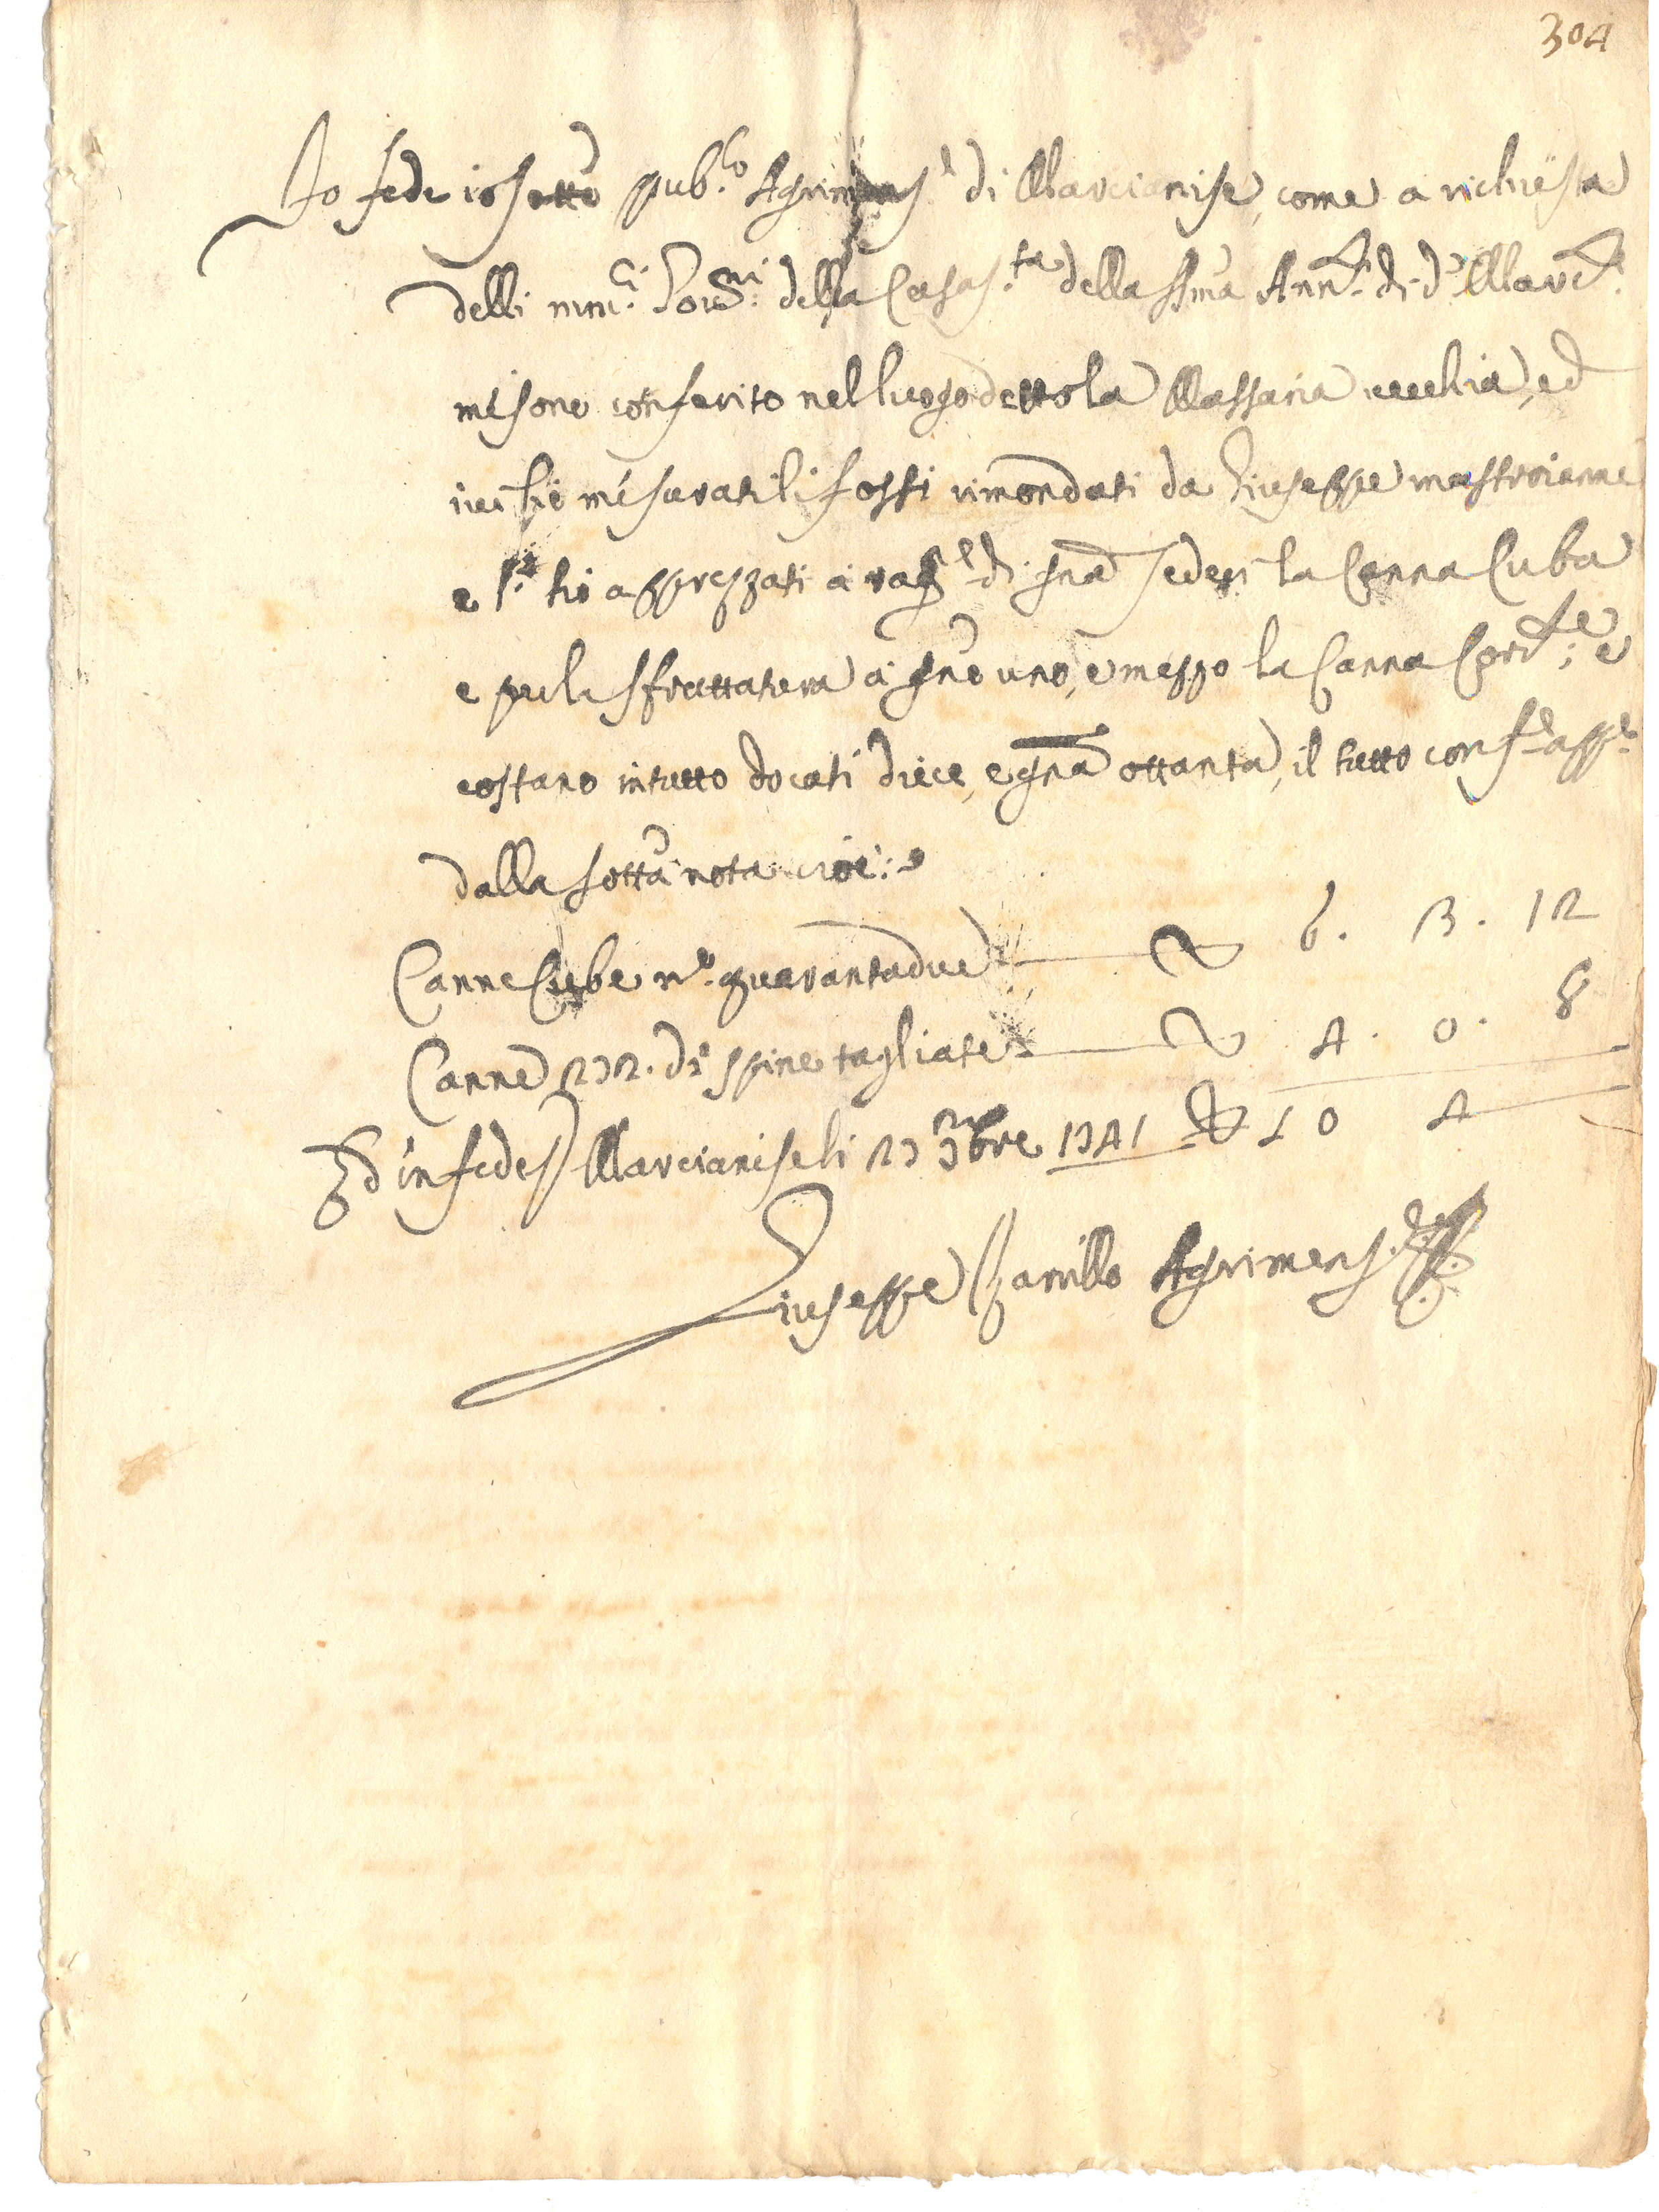 304
Fo fede io sotto pub.co Agrimens.r di Marcianise, come a richiesta
delli mm.ci Gov.ni della Casa S.ta della SS.ma Ann.ta di d.a Marc.e
mi sono conferito nel luogo detto la Massaria vecchia, ed
ivi hò mesurati li fossi rimondati da Giuseppe mastroianne
e l' hò apprezzati à rag.e di grana sedeci la Canna Cuba
e per la sfrattatura à grano uno, e mezzo la Canna Corr.te; e
costano in tutto docati diece, e grana ottanta, il tutto conf.e app.e
dalla sotta nota cioè:
Canne Cube n.o quarantadue 6. 3. 12
Canne 272. di spine tagliate 4. 0. 8
10 4
Ed in fede Marcianise li 27 9bre 1741
Giuseppe Zarrillo Agrimens.r